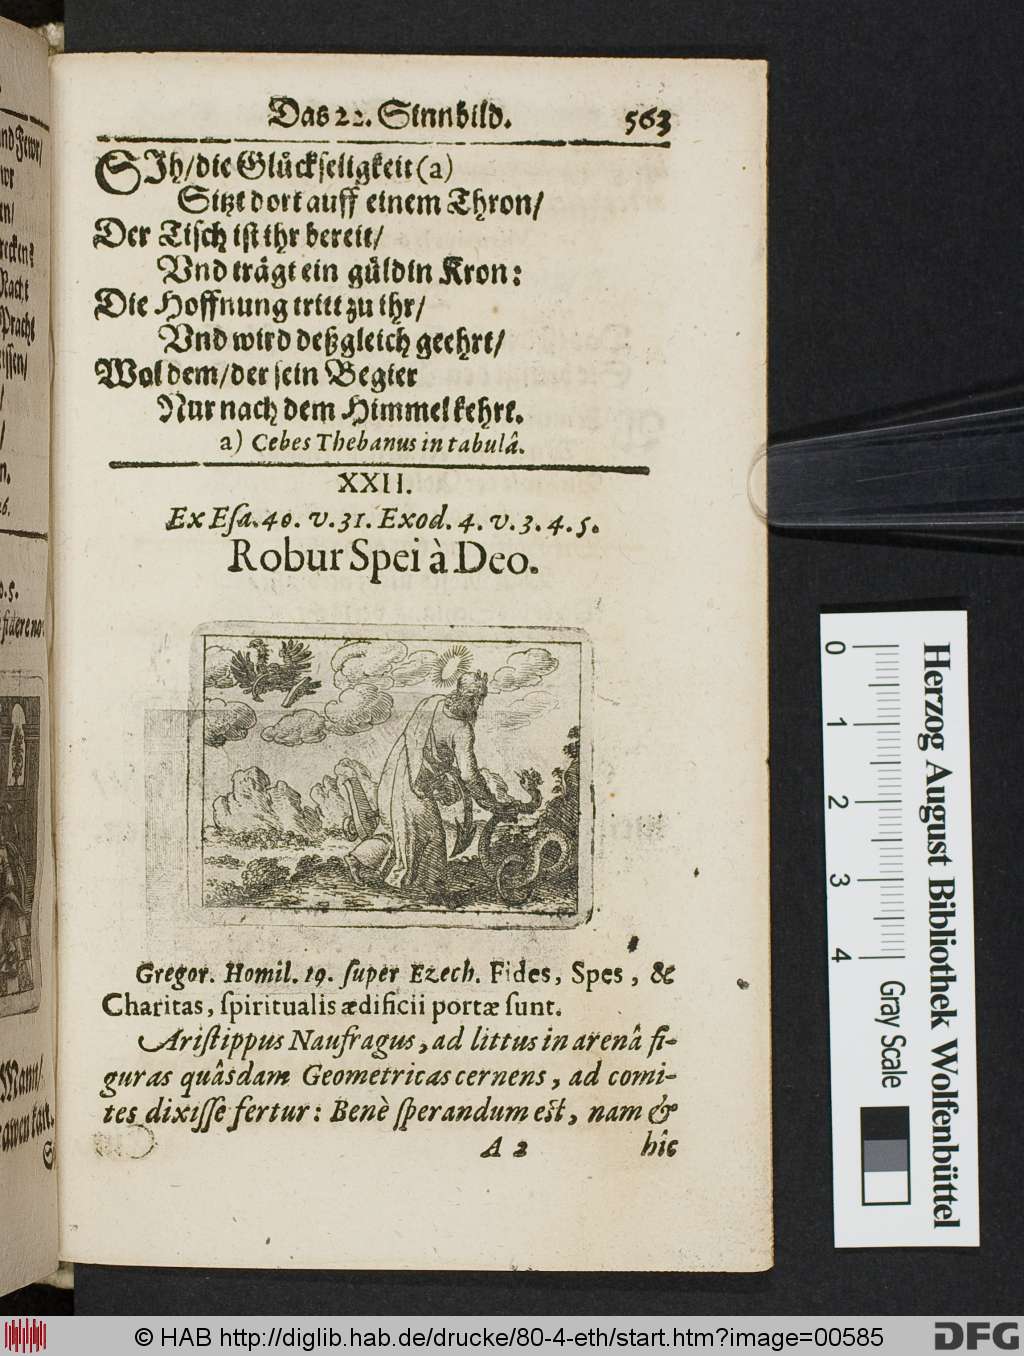 Das 22. Sinnbild. 563
SIh/die Glückseligkeit (a)
Sitzt dort auff einem Thron/
Der Tisch ist ihr bereit/
Vnd trägt ein güldin Kron:
Die Hoffnung tritt zu ihr/
Vnd wird deßgleich geehrt/
Wol dem/der sein Begier
Nur nach dem Himmel kehrt.
a) Cebes Thebanus in tabulâ.
XXII.
Ex Esa. 40. v. 31. Exod. 4. v. 3. 4. 5.
Robur Spei à Deo.
Gregor. Homil. 19. ſuper Ezech. Fides, Spes, &
Charitas, ſpiritualis ædificii portæ ſunt.
Ariſtippus Naufragus, ad littus in arenâ fi-
guras quâsdam Geometricas cernens, ad comi-
tes dixiſſe fertur: Benè ſperandum eſt, nam &
A 2 hîc
0 1 2 3 4
Gray Scale
Herzog August Bibliothek Wolfenbüttel
© HAB http://diglib.hab.de/drucke/80-4-eth/start.htm?image=00585
DFG